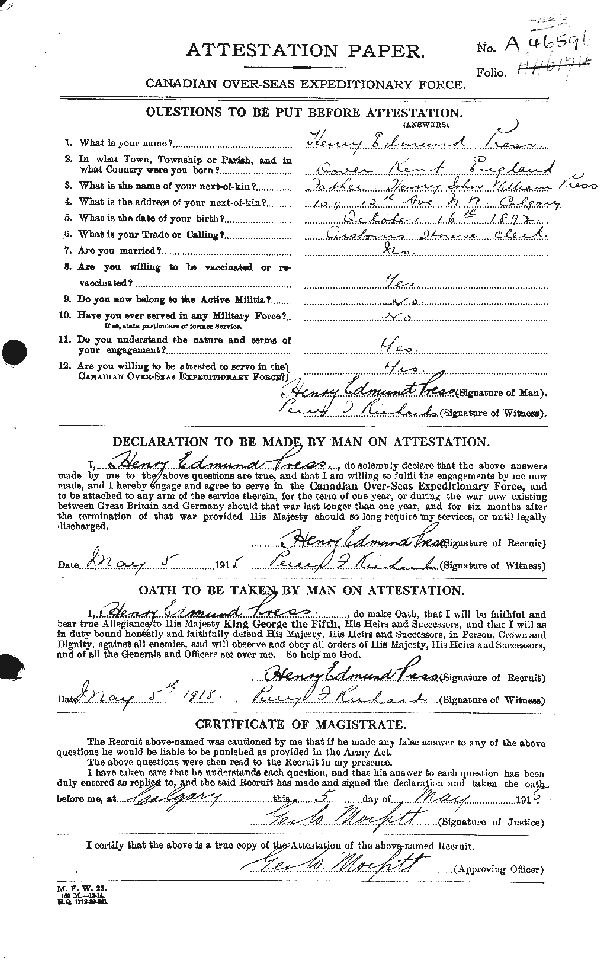 ATTESTATION PAPER.
No. A 46591
Folio.
CANADIAN OVER-SEAS EXPEDITIONARY FORCE.
QUESTIONS TO BE PUT BEFORE ATTESTATION.
(ANSWERS)
1. What is your name? Henry Edmund Press
2. In what Town, Township or Parish, and in
what Country were you born? Dover Kent England
3. What is the name of your next-of-kin? Father Henry John William Press
4. What is the address of your next-of-kin? 106 12th Ave N.W. Calgary
5. What is the date of your birth? October 16th 1892
6. What is your Trade or Calling? Customs House Clerk
7. Are you married? No
8. Are you willing to be vaccinated or re-
vaccinated? Yes
9. Do you now belong to the Active Militia? No
10. Have you ever served in any Military Force? No
If so, state particulars of former Service.
11. Do you understand the nature and terms of
your engagement? Yes.
12. Are you willing to be attested to serve in the
CANADIAN OVER-SEAS EXPEDITIONARY FORCE? Yes.
Henry Edmund Press (Signature of Man).
Percy F (Signature of Witness).
DECLARATION TO BE MADE BY MAN ON ATTESTATION.
I, Henry Edmund Press, do solemnly declare that the above answers
made by me to the above questions are true, and that I am willing to fulfil the engagements by me now
made, and I hereby engage and agree to serve in the Canadian Over-Seas Expeditionary Force, and
to be attached to any arm of the service therein, for the term of one year, or during the war now existing
between Great Britain and Germany should that war last longer than one year, and for six months after
the termination of that war provided His Majesty should so long require my services, or until legally
discharged.
Henry Edmund Press (Signature of Recruit)
Date May 5 1915 Percy F (Signature of Witness)
OATH TO BE TAKEN BY MAN ON ATTESTATION.
I, Henry Edmund Press, do make Oath, that I will be faithful and
bear true Allegiance to His Majesty King George the Fifth, His Heirs and Successors, and that I will as
in duty bound honestly and faithfully defend His Majesty, His Heirs and Successors, in Person, Crown and
Dignity, against all enemies, and will observe and obey all orders of His Majesty, His Heirs and Successors,
and of all the Generals and Officers set over me. So help me God.
Henry Edmund Press (Signature of Recruit)
Date May 5th 1915. Percy F (Signature of Witness)
CERTIFICATE OF MAGISTRATE.
The Recruit above-named was cautioned by me that if he made any false answer to any of the above
questions he would be liable to be punished as provided in the Army Act.
The above questions were then read to the Recruit in my presence.
I have taken care that he understands each question, and that his answer to each question has been
duly entered as replied to, and the said Recruit has made and signed the declaration and taken the oath
before me, at Calgary this 5 day of May 1915
(Signature of Justice)
I certify that the above is a true copy of the Attestation of the above-named Recruit.
(Approving Officer)
M. F. W. 23.